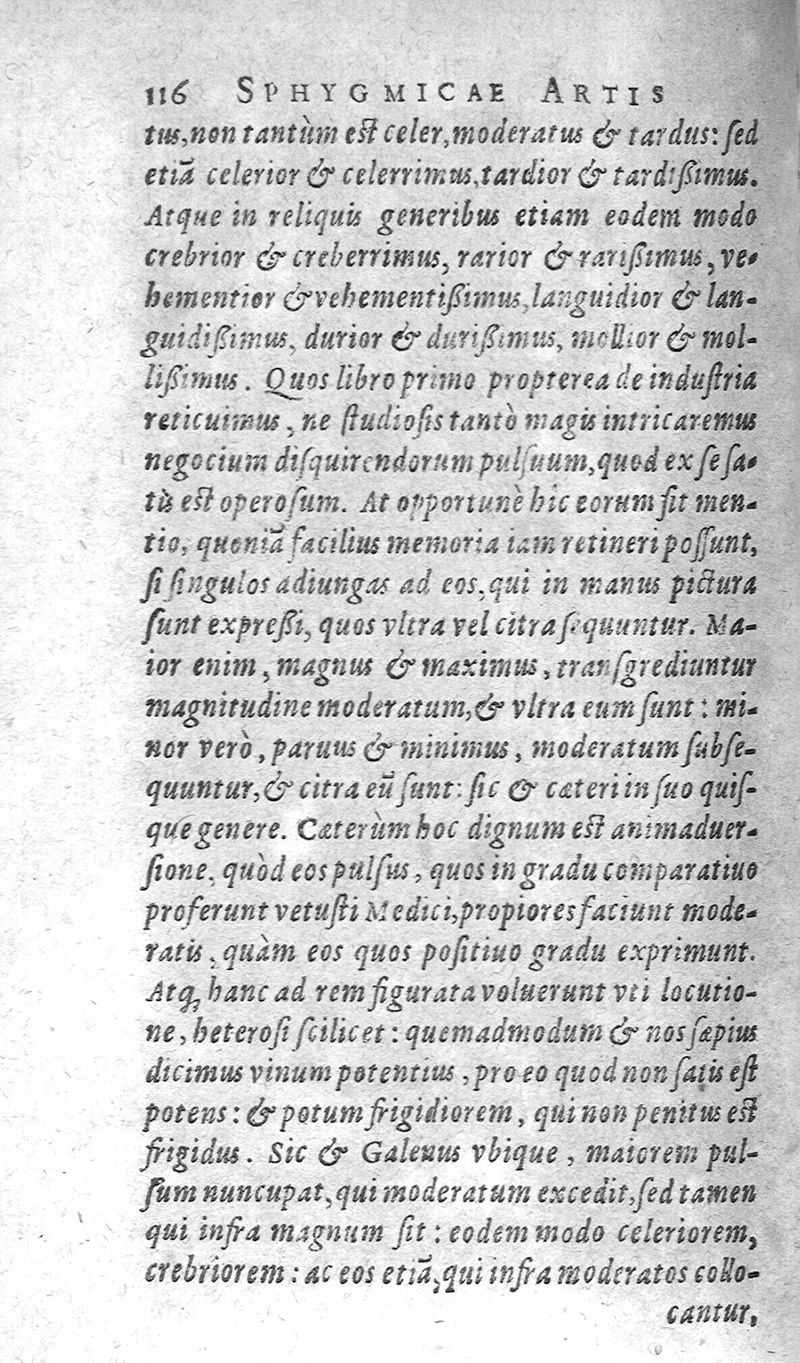 116 SPHYGMICAE ARTIS
tus, non tantùm est celer, moderatus & tardus: sed
etiā celerior & celerrimus, tardior & tardißimus.
Atque in reliquis generibus etiam eodem modo
crebrior & creberrimus, rarior & rarißimus, ve-
hementior & vehementißimus, languidior & lan-
guidißimus, durior & durißimus, mollior & mol-
lißimus. Quos libro primo propterea de industria
reticuimus, ne studiosis tantò magis intricaremus
negocium disquirendorum pulsuum, quod ex se sa-
tis est operosum. At opportunè hic eorum fit men-
tio, quoniā facilius memoria iam retineri possunt,
si singulos adiungas ad eos, qui in manus pictura
sunt expreßi, quos vltra vel citra sequuntur. Ma-
ior enim, magnus & maximus, transgrediuntur
magnitudine moderatum, & vltra eum sunt: mi-
nor verò, paruus & minimus, moderatum subse-
quuntur, & citra eū sunt: sic & cæteri in suo quis-
que genere. Cæterùm hoc dignum est animaduer-
sione, quòd eos pulsus, quos in gradu comparatiuo
proferunt vetusti Medici, propiores faciunt mode-
ratis, quàm eos quos positiuo gradu exprimunt.
Atq; hanc ad rem figurata voluerunt vti locutio-
ne, heterosi scilicet: quemadmodum & nos sæpius
dicimus vinum potentius, pro eo quod non satis est
potens: & potum frigidiorem, qui non penitus est
frigidus. Sic & Galenus vbique, maiorem pul-
sum nuncupat, qui moderatum excedit, sed tamen
qui infra magnum sit: eodem modo celeriorem,
crebriorem: ac eos etiā, qui infra moderatos collo-
cantur,